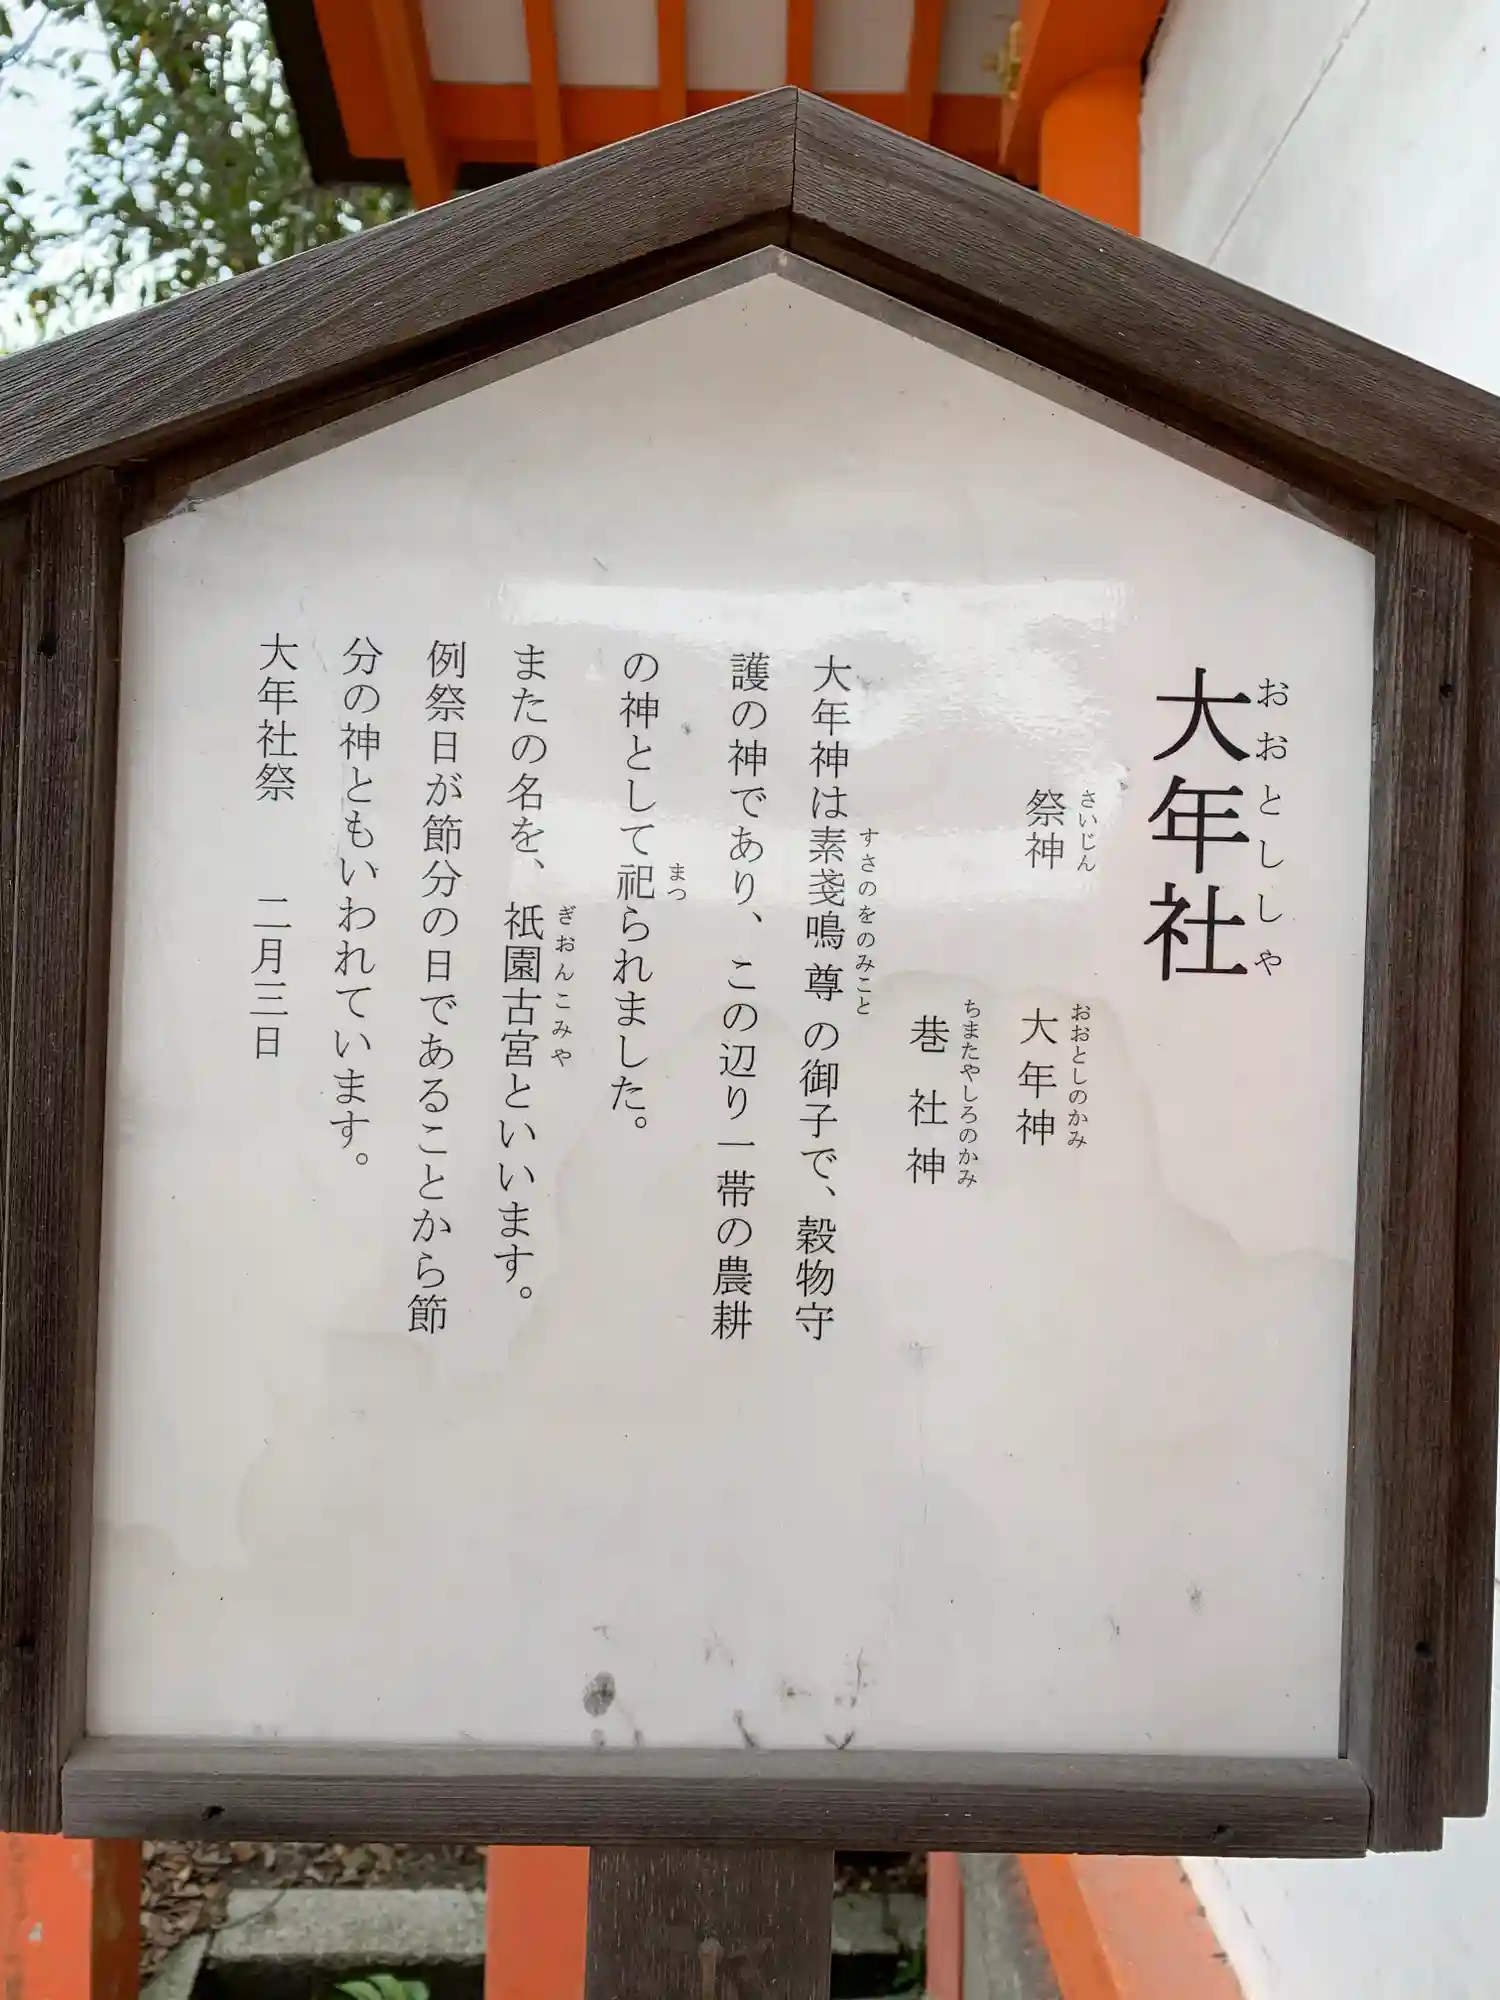 大年社
おおとししゃ
祭神
さいじん
大年神
おおとしのかみ
巷社神
ちまたやしろのかみ
大年神は素戔鳴尊の御子で、穀物守
すさのをのみこと
護の神であり、この辺り一帯の農耕
の神として祀られました。
まつ
またの名を、祇園古宮といいます。
ぎおんこみや
例祭日が節分の日であることから節
分の神ともいわれています。
大年社祭 二月三日